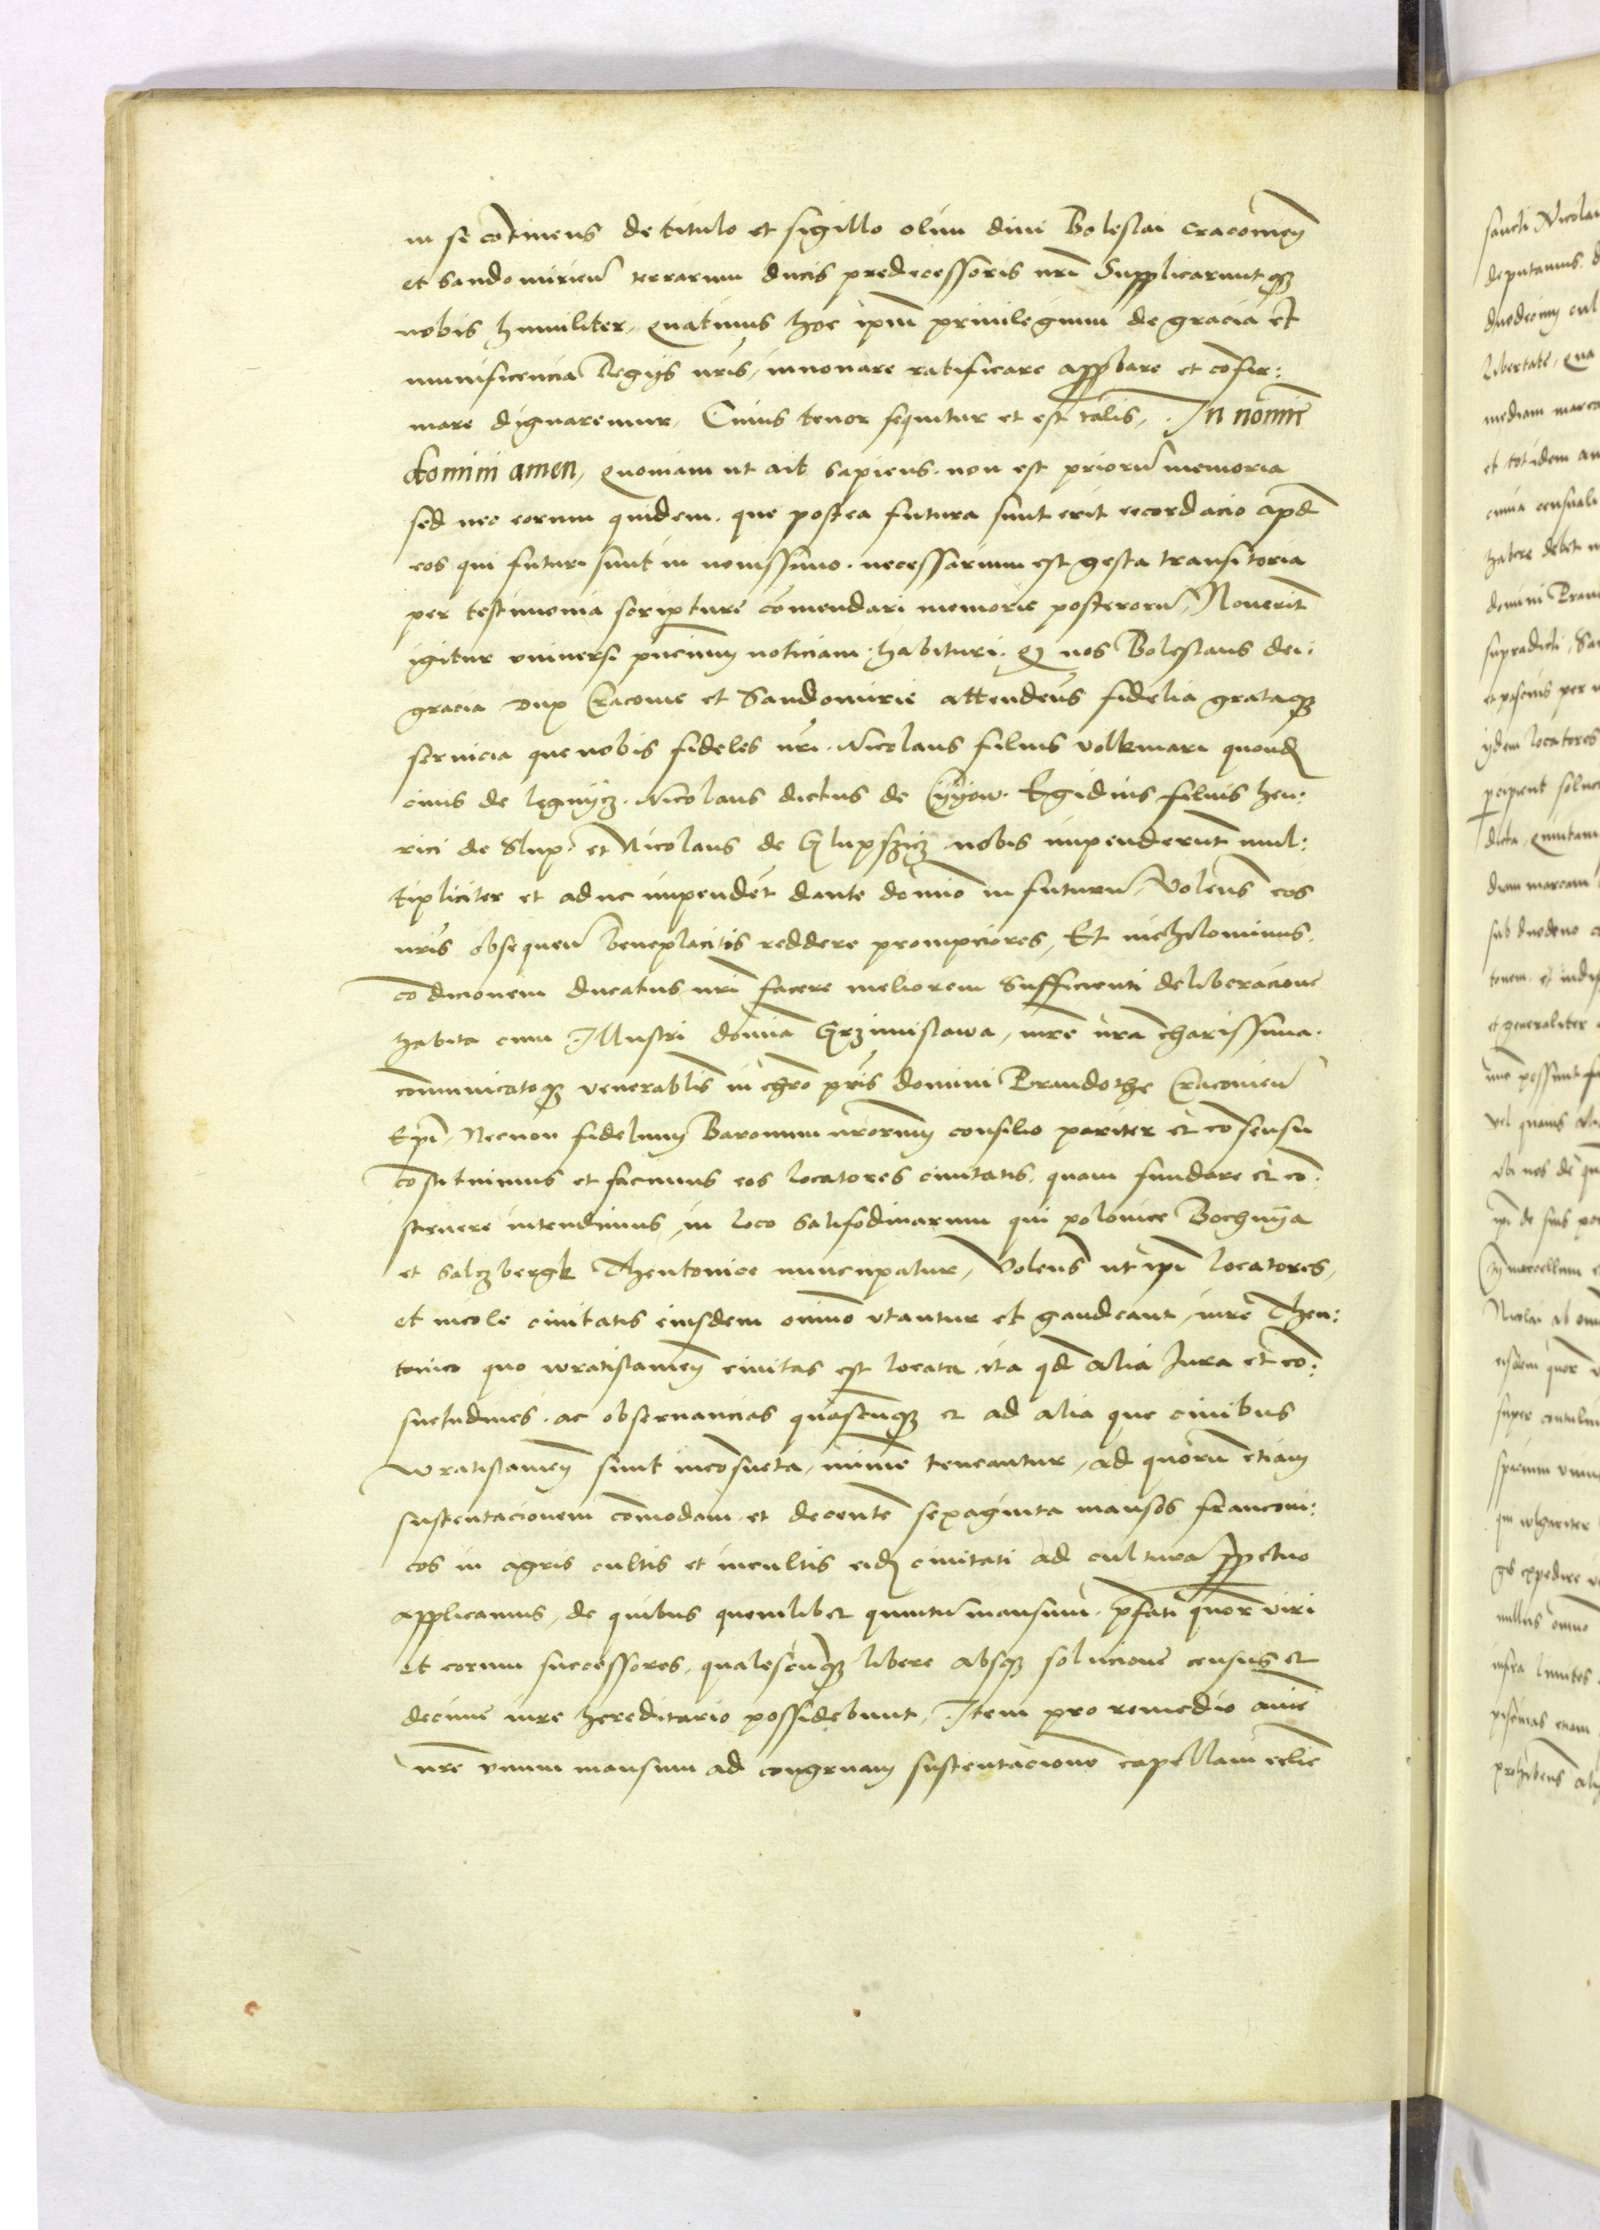 in se cōtinens de titulo et sigillo olim diui Boleslai Cracouien̄
et Sandomirien̄ terrarum ducis predecessoris nr̄i Supplicarunt q3
nobis humiliter, quatinus hoc ip̄m priuilegium de gracia et
munificencia Regijs nr̄is, innouare ratificare app̄bare et cōfir:
mare dignaremur, Cuius tenor sequitur et est talis, In nomīe
domini amen, Quoniam ut ait sapiens. non est priorū memoria
sed nec eorum quidem. que postea futura sunt erit recordacio apd̄
eos qui futuri sunt in nouissimo. necessarium est gesta transitoria
per testimonia scripture cōmendari memorie posterorū, Nouerint
igitur vniuersi pn̄cium noticiam habituri. Q nos Boleslaus dei:
gracia Dux Cracouie et Sandomirie attendens fidelia grataq3
seruicia que nobis fideles nr̄i. Nicolaus filius volkmari quond̄
ciuis de legnycz. Nicolaus dictus de Cyyow. Egidius filius hen:
rici de Slup. et Nicolaus de Glupssicz nobis impenderunt mul:
tipliciter et adhc impendēt dante domīo in futurū, Volens eos
nr̄is obsequen̄ beneplacitis reddere prompciores, Et nichilominus.
cōdicionem ducatus nr̄i facere meliorem Sufficienti deliberacione
habita cum Illustri domīa Grzimislawa, mr̄e nr̄a charissima.
cōmunicatoq3 venerablis in chr̄o pr̄is domini Prandothe Cracouien̄
Ep̄i, Necnon fidelium Baronum nr̄orum consilio pariter et cōsensu
cōstituimus et facimus eos locatores ciuitatis. quam fundare et cō:
struere intendimus, in loco salifodinarum qui polonice Bochnÿa
et salczbergk Theutonice nuncupatur, Volens ut ip̄i locatores,
et incole ciuitatis eiusdem omīo vtantur et gaudeant, iure Theu:
tonico quo wratislauien̄ ciuitas est locata. ita qd̄ alia Iura et cō:
suetudines. ac obseruancias quascunq3 et ad alia que ciuibus
wratislauien̄ sunt incōsueta, minīe teneantur, ad quorū etiam
sustentacionem cōmodam et decentē sexaginta mansos franconi:
cos in agris cultis et incultis eid̄ ciuitati ad culturā pp̄etuo
applicamus, de quibus quemlibet quintū mansum. p̄fati quor̄ viri
et eorum successores, qualescunq3 libere absq3 solucione census et
decime iure hereditario possidebunt, Item pro remedio anīe
nr̄e vnum mansum ad congruam sustentacionē capellam ecl̄ie